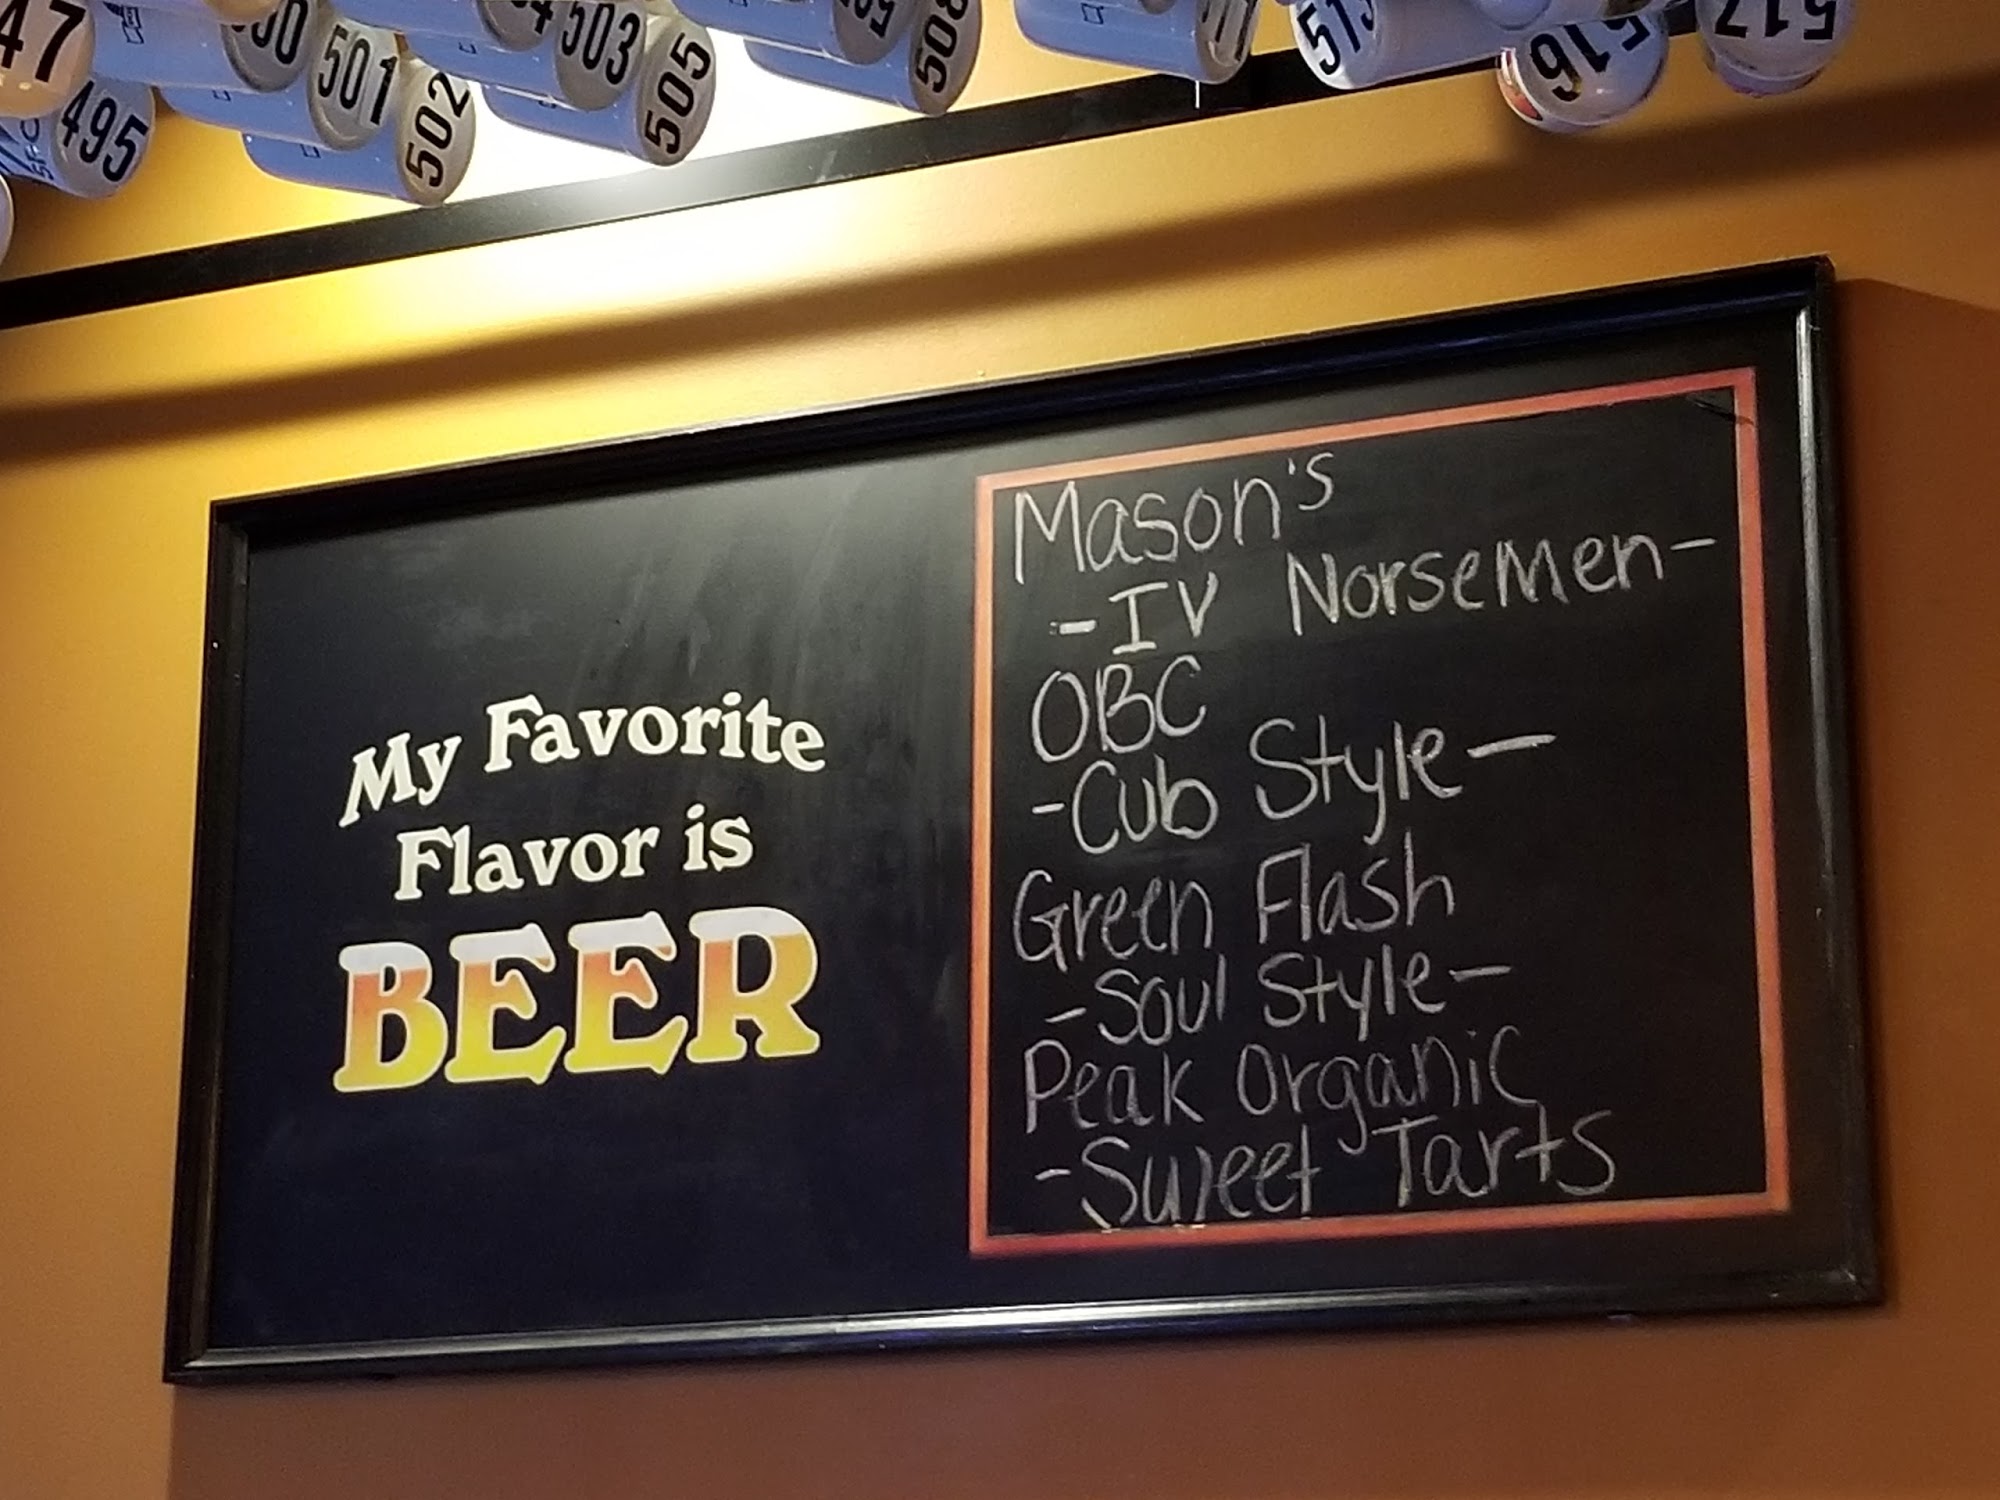 47
495
501
502
503
505
508
511
513
516
517
My Favorite
Flavor is
BEER
Mason's
-IV Norsemen-
OBC
-Cub Style-
Green Flash
-Soul Style-
Peak Organic
-Sweet Tarts